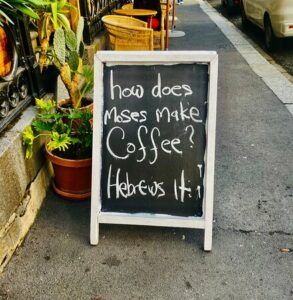 how does
Moses make
Coffee?
Hebrews it!